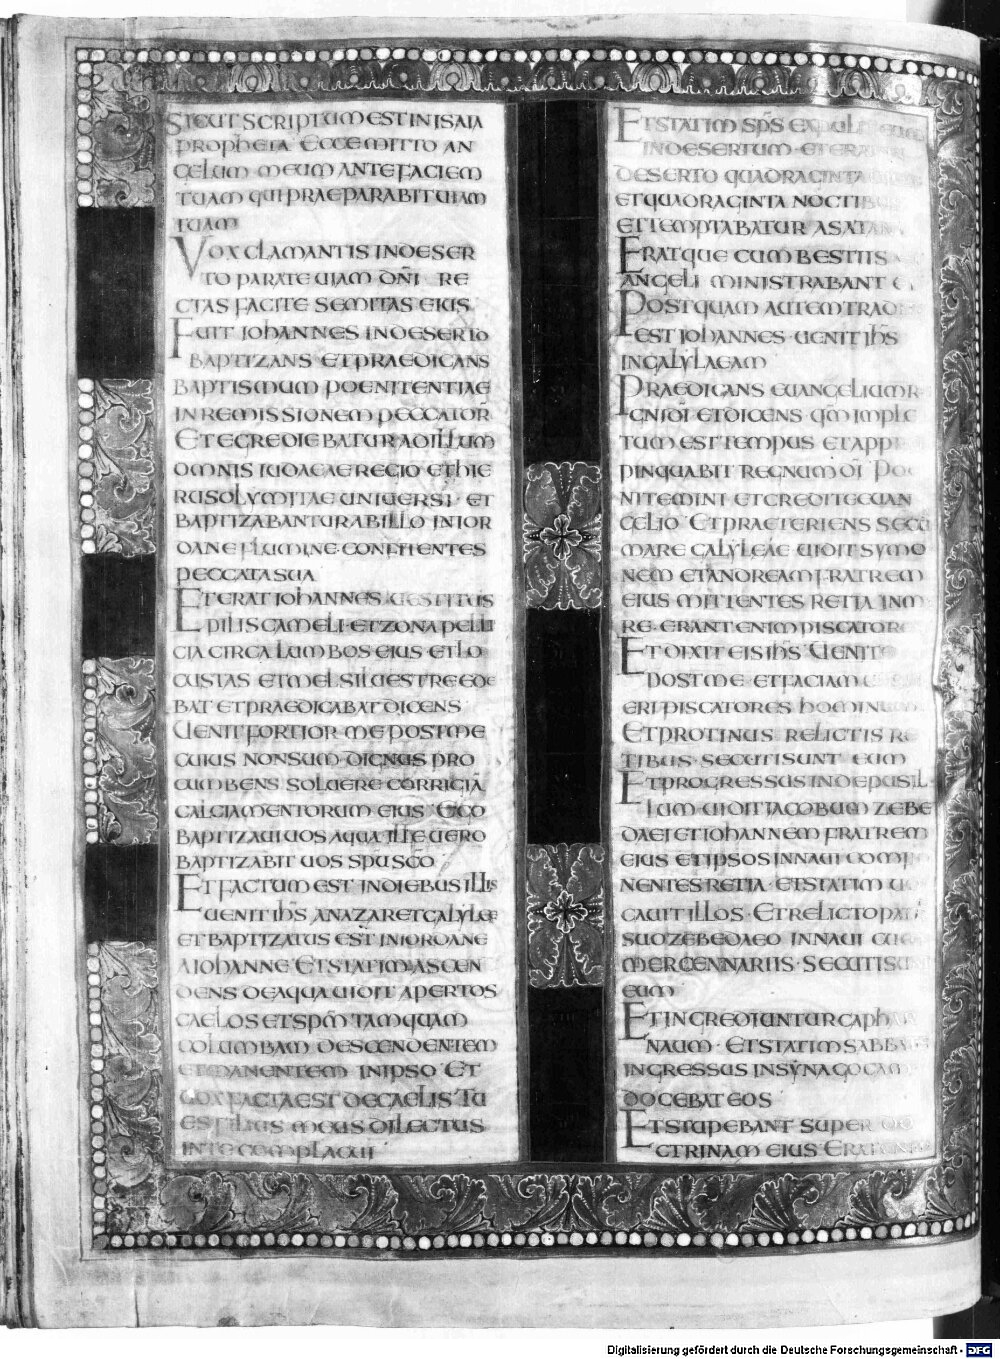 SICUT SCRIPTUM EST IN ISAIA
PROPHETA ECCE MITTO AN
GELUM MEUM ANTE FACIEM
TUAM QUI PRAEPARABIT UIAM
TUAM
VOX CLAMANTIS IN DESER
TO PARATE UIAM DÑI RE
CTAS FACITE SEMITAS EIUS
FUIT IOHANNES IN DESERTO
BAPTIZANS ET PRAEDICANS
BAPTISMUM POENITENTIAE
IN REMISSIONEM PECCATOR̄
ET EGREDIEBATUR AD ILLUM
OMNIS IUDAEAE REGIO ET HIE
RUSOLYMITAE UNIUERSI · ET
BAPTIZABANTUR AB ILLO IN IOR
DANE FLUMINE · CONFITENTES
PECCATA SUA
ET ERAT IOHANNES UESTITUS
PILIS CAMELI · ET ZONA PELLI
CIA CIRCA LUMBOS EIUS ET LO
CUSTAS ET MEL SILUESTRE EDE
BAT ET PRAEDICABAT DICENS
UENIT FORTIOR ME POST ME
CUIUS NON SUM DIGNUS PRO
CUMBENS SOLUERE CORRIGIĀ
CALCIAMENTORUM EIUS · EGO
BAPTIZAUI UOS AQUA ILLE UERO
BAPTIZABIT UOS SPU SC̄O
ET FACTUM EST IN DIEBUS ILLIS
UENIT IH̄S A NAZARET GALYLEE
ET BAPTIZATUS EST IN IORDANE
A IOHANNE ET STATIM ASCEN
DENS DE AQUA UIDIT APERTOS
CAELOS ET SPM̄ TAMQUAM
COLUMBAM DESCENDENTEM
ET MANENTEM IN IPSO ET
UOX FACTA EST DE CAELIS TU
ES FILIUS MEUS DILECTUS
IN TE COMPLACUI
ET STATIM SP̄S EXPULIT
IN DESERTUM · ET ERAT
DESERTO QUADRAGINTA
ET QUADRAGINTA NOCTIBUS
ET TEMPTABATUR A SATANA
ERATQUE CUM BESTIIS
ANGELI MINISTRABANT
POSTQUAM AUTEM TRADI
EST IOHANNES · UENIT IH̄S
IN GALYLAEAM
PRAEDICANS EUANGELIUM R
GNI DĪ ET DICENS · QM̄ IMPLE
TUM EST TEMPUS ET APPR
PINQUABIT REGNUM DĪ POE
NITEMINI ET CREDITE EUAN
GELIO · ET PRAETERIENS SECU
MARE GALYLEAE UIDIT SYMO
NEM ET ANDREAM FRATREM
EIUS MITTENTES RETIA IN M
RE · ERANT ENIM PISCATORE
ET DIXIT EIS IH̄S UENITE
POST ME · ET FACIAM U
ERI PISCATORES HOMINUM
ET PROTINUS RELICTIS RE
TIBUS · SECUTI SUNT EUM
ET PROGRESSUS INDE PUSIL
LUM UIDIT IACOBUM ZEBE
DAEI ET IOHANNEM FRATREM
EIUS ET IPSOS IN NAUI COMPO
NENTES RETIA · ET STATIM UO
CAUIT ILLOS · ET RELICTO PATRE
SUO ZEBEDAEO IN NAUI CUM
MERCENNARIIS · SECUTI SUN
EUM
ET INGREDIUNTUR CAPHAR
NAUM · ET STATIM SABBA
INGRESSUS IN SYNAGOGAM
DOCEBAT EOS
ET STUPEBANT SUPER DO
CTRINAM EIUS ERAT ENIM
Digitalisierung gefördert durch die Deutsche Forschungsgemeinschaft - DFG